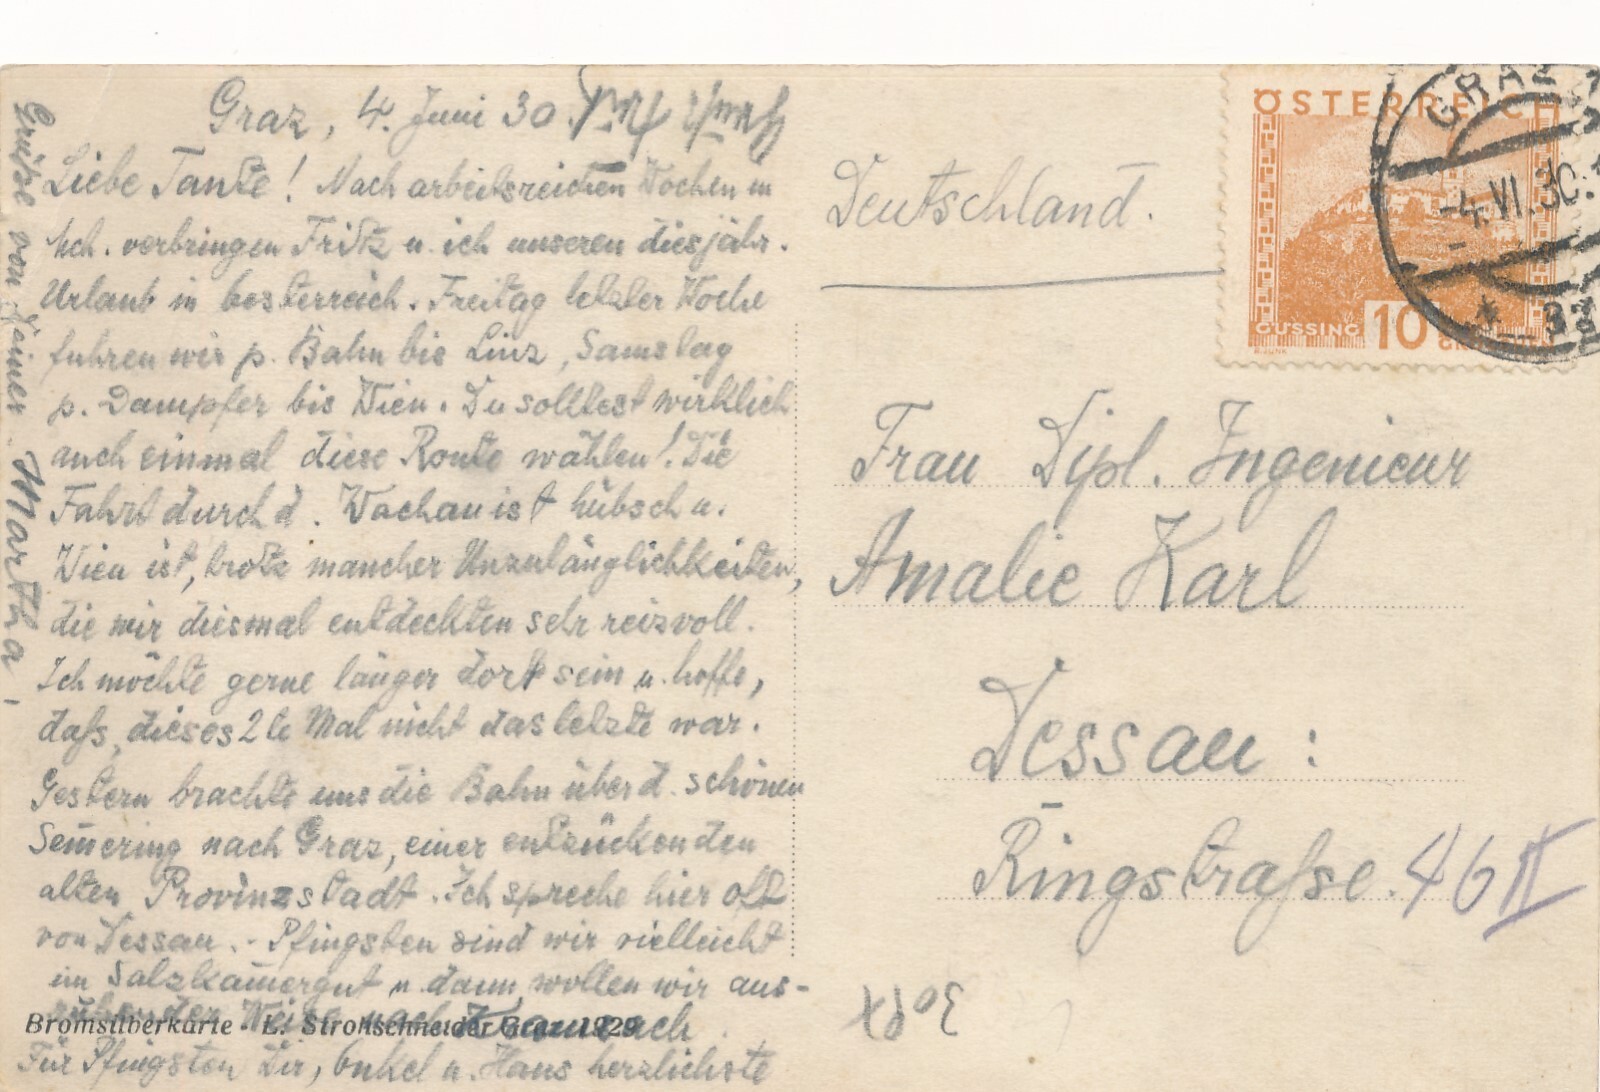 Graz, 4. Juni 30.
Liebe Tante! Nach arbeitsreichen Wochen in
Mch. verbringen Fritz u. ich unseren diesjähr.
Urlaub in Oesterreich. Freitag letzter Woche
fuhren wir p. Bahn bis Linz, Samstag
p. Dampfer bis Wien. Du solltest wirklich
auch einmal diese Route wählen! Die
Fahrt durch d. Wachau ist hübsch u.
Wien ist, trotz mancher Unzulänglichkeiten,
die wir diesmal entdeckten sehr reizvoll.
Ich möchte gerne länger dort sein u. hoffe,
dass, dieses 2te Mal nicht das letzte war.
Gestern brachte uns die Bahn über d. schönen
Sem̅ering nach Graz, einer entzückenden
alten Provinzstadt. Ich spreche hier oft
von Dessau. - Pfingsten sind wir vielleicht
im Salzkam̅ergut u. dann wollen wir aus-
ruhender Weise nach
Für Pfingsten Dir, Onkel u. Hans herzlichste
Grüsse von Deiner Martha.
Bromsilberkarte - L. Strohschneider Graz 1929
Deutschland.
ÖSTERREICH
GÜSSING 10 GROSCHEN
GRAZ
-4.VI.30.
* 3a
Frau Dipl. Ingenieur
Amalie Karl
Dessau:
Ringstrasse 46 II